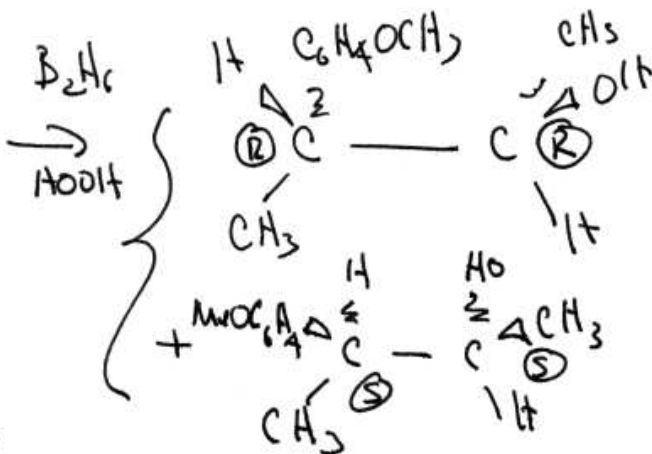 B₂H₆
HOOH
H C₆H₄OCH₃ CH₃
OH
Ⓡ C — C Ⓡ
CH₃ H
H HO
+ MeOC₆H₄ C — C CH₃
Ⓢ Ⓢ
CH₃ H